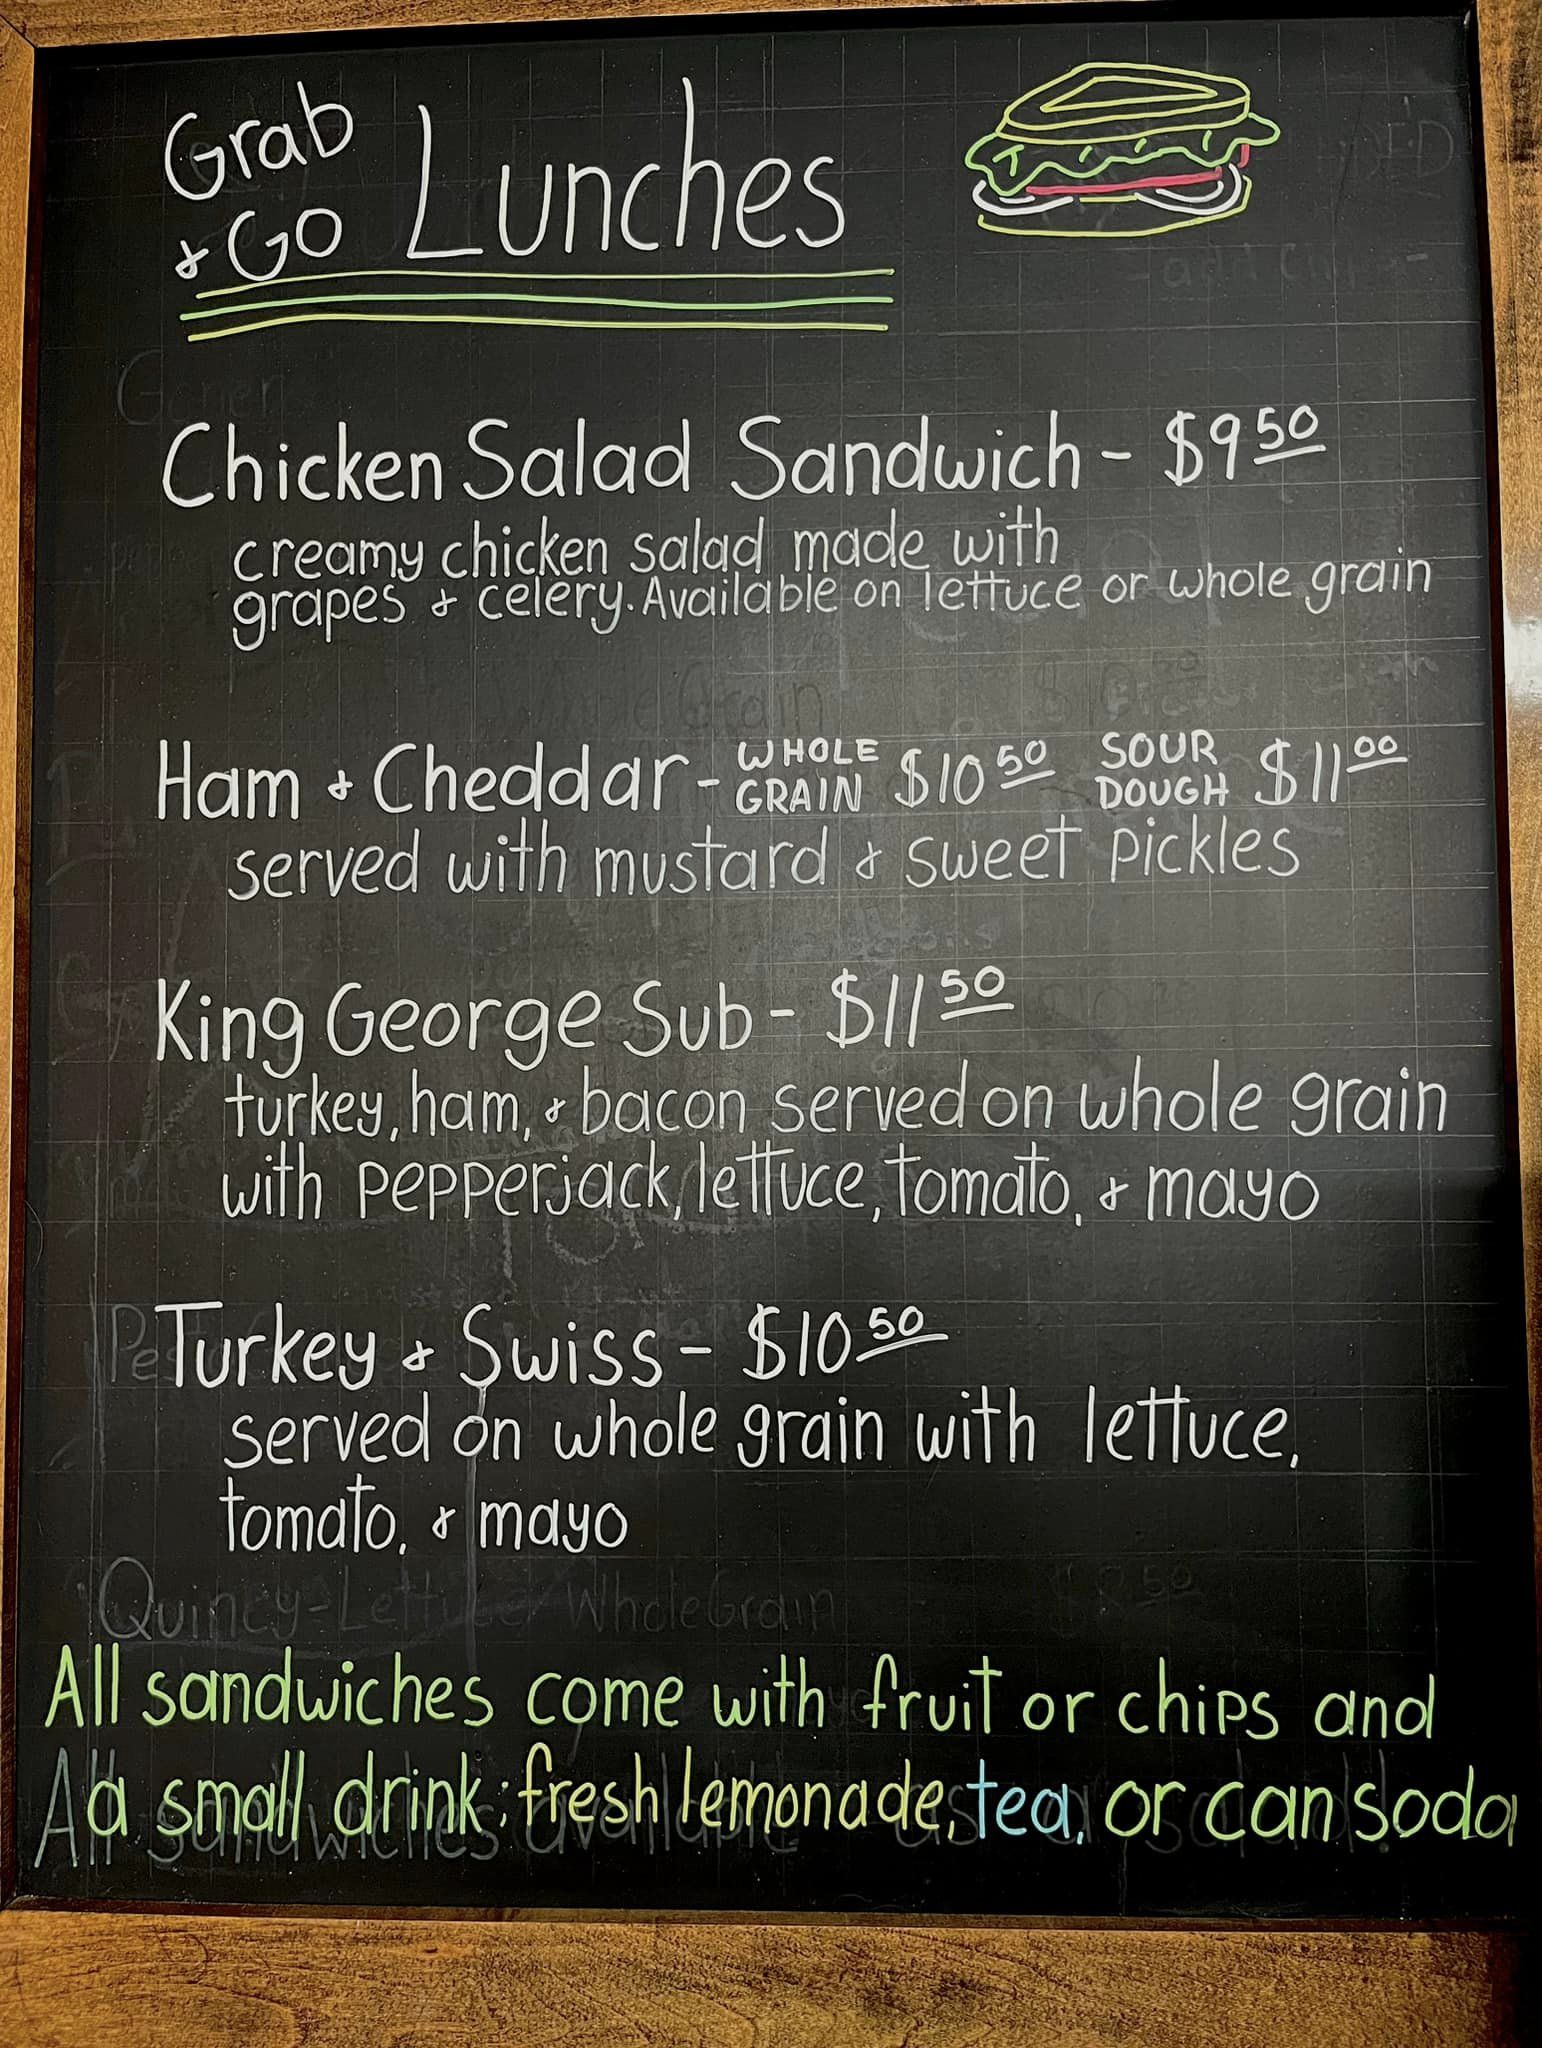 Grab
& Go Lunches
Chicken Salad Sandwich - $9 50
creamy chicken salad made with
grapes & celery. Available on lettuce or whole grain
Ham & Cheddar - WHOLE GRAIN $10 50 SOUR DOUGH $11 00
served with mustard & sweet pickles
King George Sub - $11 50
turkey, ham, & bacon served on whole grain
with pepperjack, lettuce, tomato, & mayo
Turkey & Swiss - $10 50
served on whole grain with lettuce,
tomato, & mayo
Quincy-Lettuce WholeGrain
All sandwiches come with fruit or chips and
a small drink; fresh lemonade, tea, or can soda
All sandwiches available as a salad!